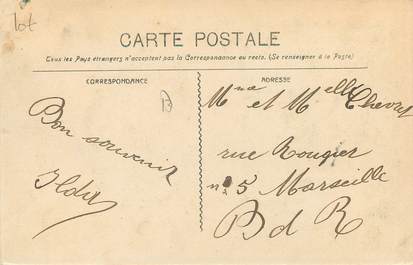 lot
CARTE POSTALE
Tous les Pays étrangers n'acceptent pas la Correspondance au recto. (Se renseigner à la Poste)
CORRESPONDANCE
ADRESSE
B
Bon souvenir
Mme et Melle Chevret
rue Rougier
n° 5 Marseille
B d R